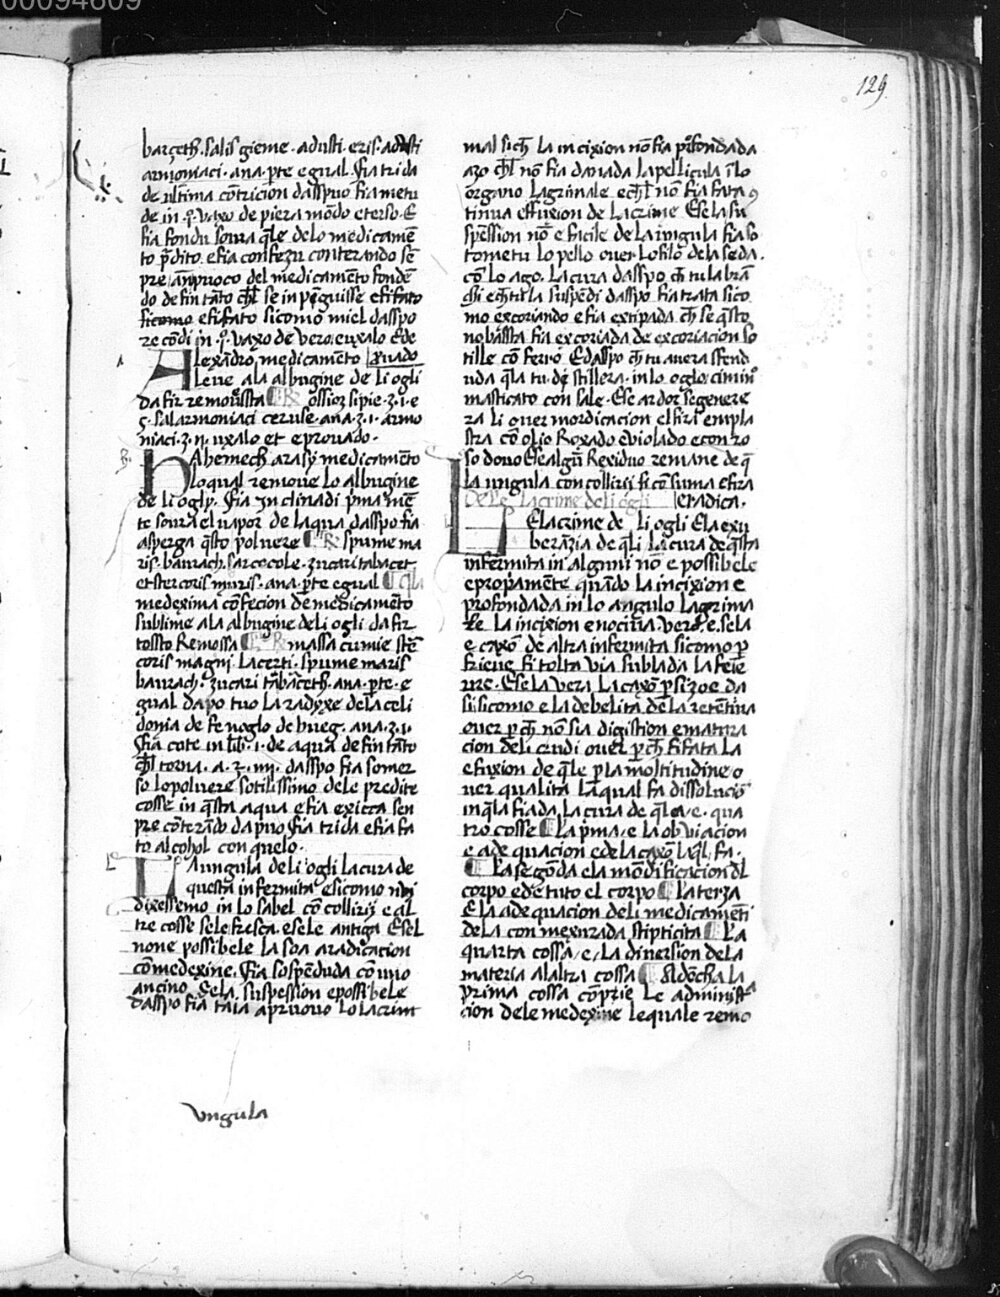 00094609
129
barzeth. salis gieme. adusti. eris. adusti
armoniaci. ana. pte egual. fia trida
de ultima cõtricion daspuo fia metu
de in .j. vaxo de piera mõdo e terso. E
fia fondu soura q̃le delo medicamẽ
to p̃dito. e fia confezu conterando sẽ
pre del medicamẽto fondẽ
do de fin tãto ch̃l se in pẽguisse e fi fato
ficomo e fi fato sicomo miel daspo
re cõdi in .j. vaxo de vero. euxalo Ede
Alexãdro medicamẽto
leue ala albugine de li ogli
da fir remossta ¶ ℞ ossioz sipie .z.i. e
salarmoniaci ceruse. ana .z.i. armo
niaci .z.ij. uxalo et e prouado.
hAbemech arasy medicamẽto
loqual remoue lo albugine
de li oglj. fia in clinadi p̃ma mẽ
te soura el uapor de laqua daspo fia
asperga q̃sto poluere ¶ ℞ spume ma
ris. baurach. sarcocole. zucari tabazet
et stercoris muris. ana. p̃te egual ¶ q̃la
medexima cõfecion de medicamẽto
sublime ala albugine de li ogli da fir
tosto Remossa ¶ ℞ massa cumie stẽ
coris magni lacerti. spume maris
baurach. zucari tãbãzeth. ana. p̃te. e
gual dapo tuo la radyxe dela celi
donia de fenoglo de bueg. ana .z.i
fia cote in lib̃ .i. de aqua de fin tãto
ch̃l torna .a. z. iiij. daspo fia somer
so lo poluere sotilissimo dele predite
cosse in q̃sta aqua e fia exicca sen
pre cõterãdo da puo fia trida e fia fa
to alcohol con quelo.
LA ungula de li ogli la cura de
questa infermita e sicomo nui
dixessemo in lo sabel cõ collirij e al
tre cosse sele fresca. e sele antiga Esel
none possibele la soa aradicacion
cõ medexine. fia sospẽduda cõ uno
ancino Sela suspession e possibele
daspo fia taia apruouo lo lacrim
Vngula
mal sich̃ la incixion nõ fia p̃fondada
azo ch̃l nõ fia danada la pellicula ĩ lo
organo lagrimale e ch̃l nõ fia fata 9
tinua effuxion de lacrime Ese la su
spẽssion nõ e facile de la ungula fia so
tometu lo pello ouer lo filo dela seda.
cõ lo ago. La cura daspo ch̃ tu la brã
chi e ch̃ tu la suspẽdi daspo fia trata sico
mo excoriando e fia extirpada ch̃ se q̃sto
no bãsta fia excoriada de excoriacion so
tille cõ ferro Edaspo ch̃ tu auera sfend
uda q̃la tu. de stillera. in lo oglo ciminº
masticato con sale. Ese ardor se genere
ra li ouer mordicacion el fira empla
stra cõ olio Roxado e violado e con ro
so douo Ese algũ Residuo remane de q̃
la ungula con collirij fi cõ suma e fira
Dele lacrime de li ogli eradica.
LE lacrime de li ogli e la exu
berãzia de q̃li La cura de q̃sta
infermita in algnui no e possibele
e propamente quãdo la incixion e
profondada in lo angulo lagrima
le la incixion e nociua. vero. e. se la
e caxõ de altra infermita sicomo p
frieue fi tolta via sublada la feue
Ese la vera la caxõ p si zoe da
si sicomo e la debelita de la retentiua
ouer p ch̃ nõ sia digistion e matura
cion deli crudi ouer p ch̃ fi fata la
efuxion de q̃le p la moltitudine o
uer qualita la qual fa dissolucio
in q̃la fiada la cura de q̃le. e. qua
tro cosse ¶ La p̃ma. e la obuiacion
e ade quacion e dela caxõ la q̃l. fa.
¶ La segõda e la mõdificacion dl
corpo e de tuto el corpo ¶ La terza
E la ade quacion deli medicamẽti
dela con mexurada stipticita ¶ La
quarta cossa. e. la diuersion dela
materia al altra cossa ¶ Adõcha la
prima cossa cõprie le administra
cion dele medexine le quale remo